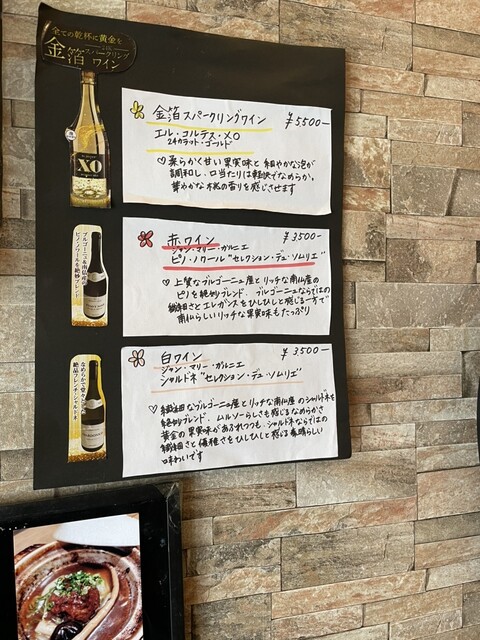 全ての乾杯に黄金を
金箔スパークリング
ワイン
XO
金箔スパークリングワイン ¥5,500-
エル・コルテス・XO
24カラット・ゴールド
♡ 柔らかく甘い果実味と細やかな泡が
調和し、口当たりは軽快でなめらか。
華やかな桃の香りを感じさせます
ブルゴーニュ&南仏産の
ピノ・ノワールを絶妙ブレンド
赤ワイン ¥3,500-
ジャン・マリー・ガルニエ
ピノ・ノワール"セレクション・デュ・ソムリエ"
♡ 上質なブルゴーニュ産とリッチな南仏産の
ピノを絶妙ブレンド、ブルゴーニュならではの
繊細さとエレガンスをひしひしと感じる一方で
南仏らしいリッチな果実味もたっぷり
なめらかで堂々とした
絶品フレンチ・シャルドネ
白ワイン ¥3,500-
ジャン・マリー・ガルニエ
シャルドネ"セレクション・デュ・ソムリエ"
♡ 繊細なブルゴーニュ産とリッチな南仏産のシャルドネを
絶妙ブレンド、ムルソーらしさも感じるなめらかさ
黄金の果実味があふれつつも、シャルドネならではの
繊細さと優雅さをひしひしと感じる素晴らしい
味わいです